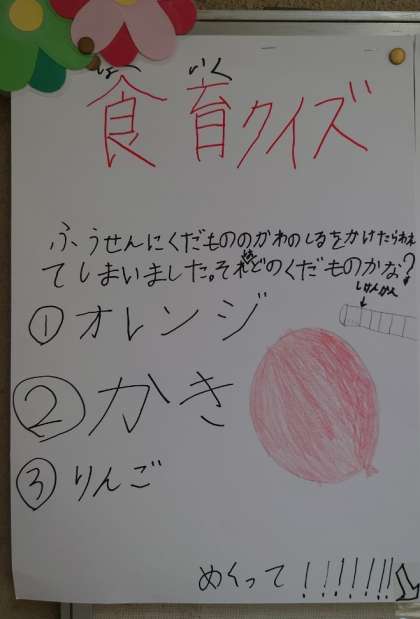 しょく いく
食育クイズ
ふうせんにくだもののかわのしるをかけたらわれ
てしまいました。それはどのくだものかな?
①オレンジ
②かき
③りんご
めくって!!!!!!!